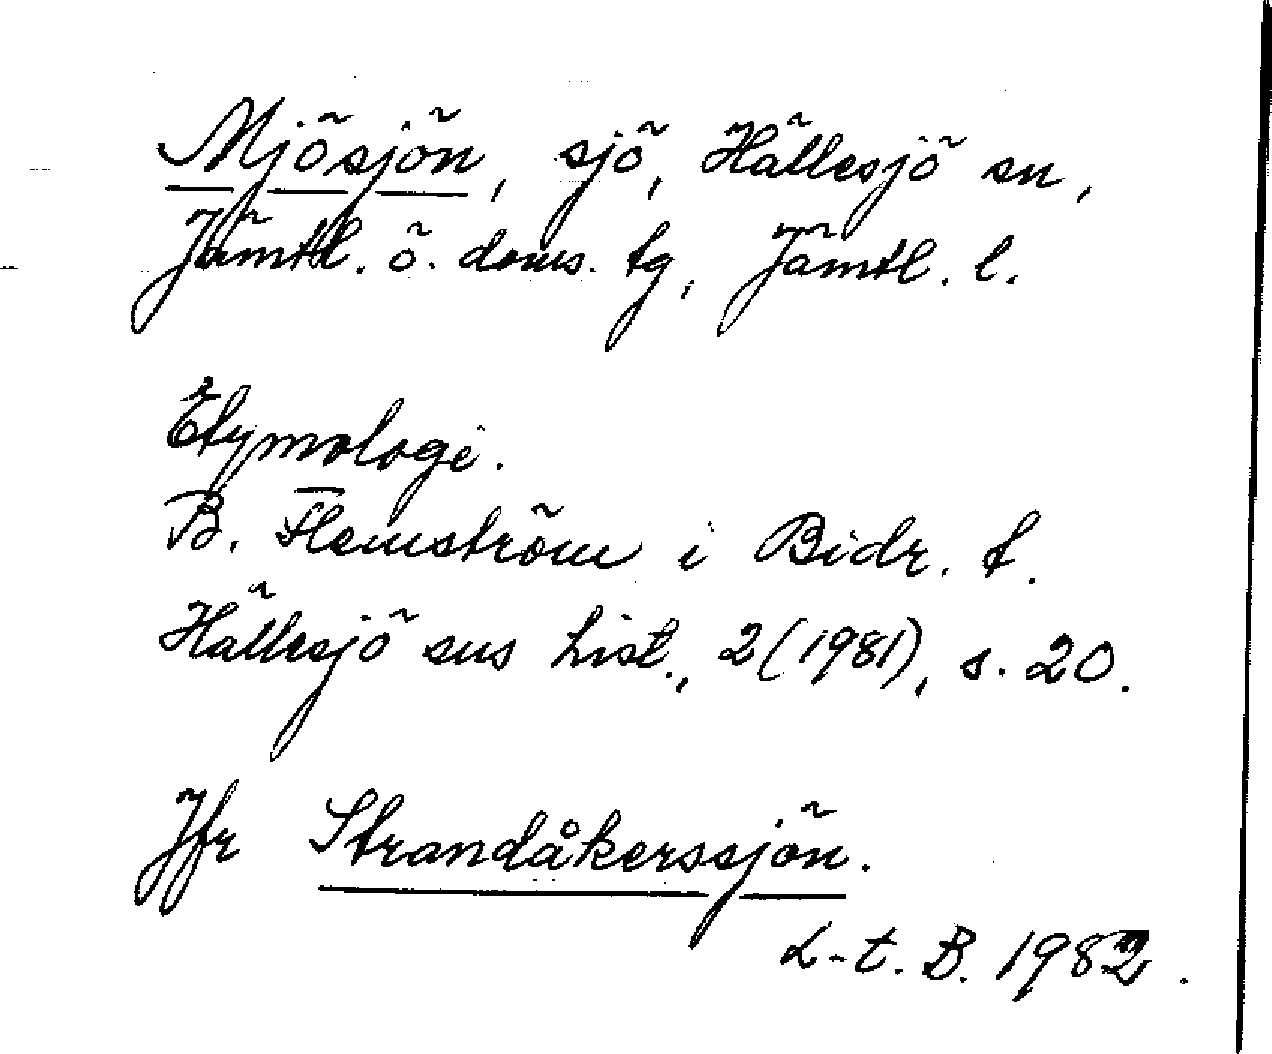 Mjösjön, sjö, Hällesjö sn,
Jämtl. ö. doms. tg, Jämtl. l.
Etymologi.
B. Flemström i Bidr. t.
Hällesjö sns hist., 2(1981), s. 20.
Jfr Strandåkerssjön.
L-t. B. 1982.